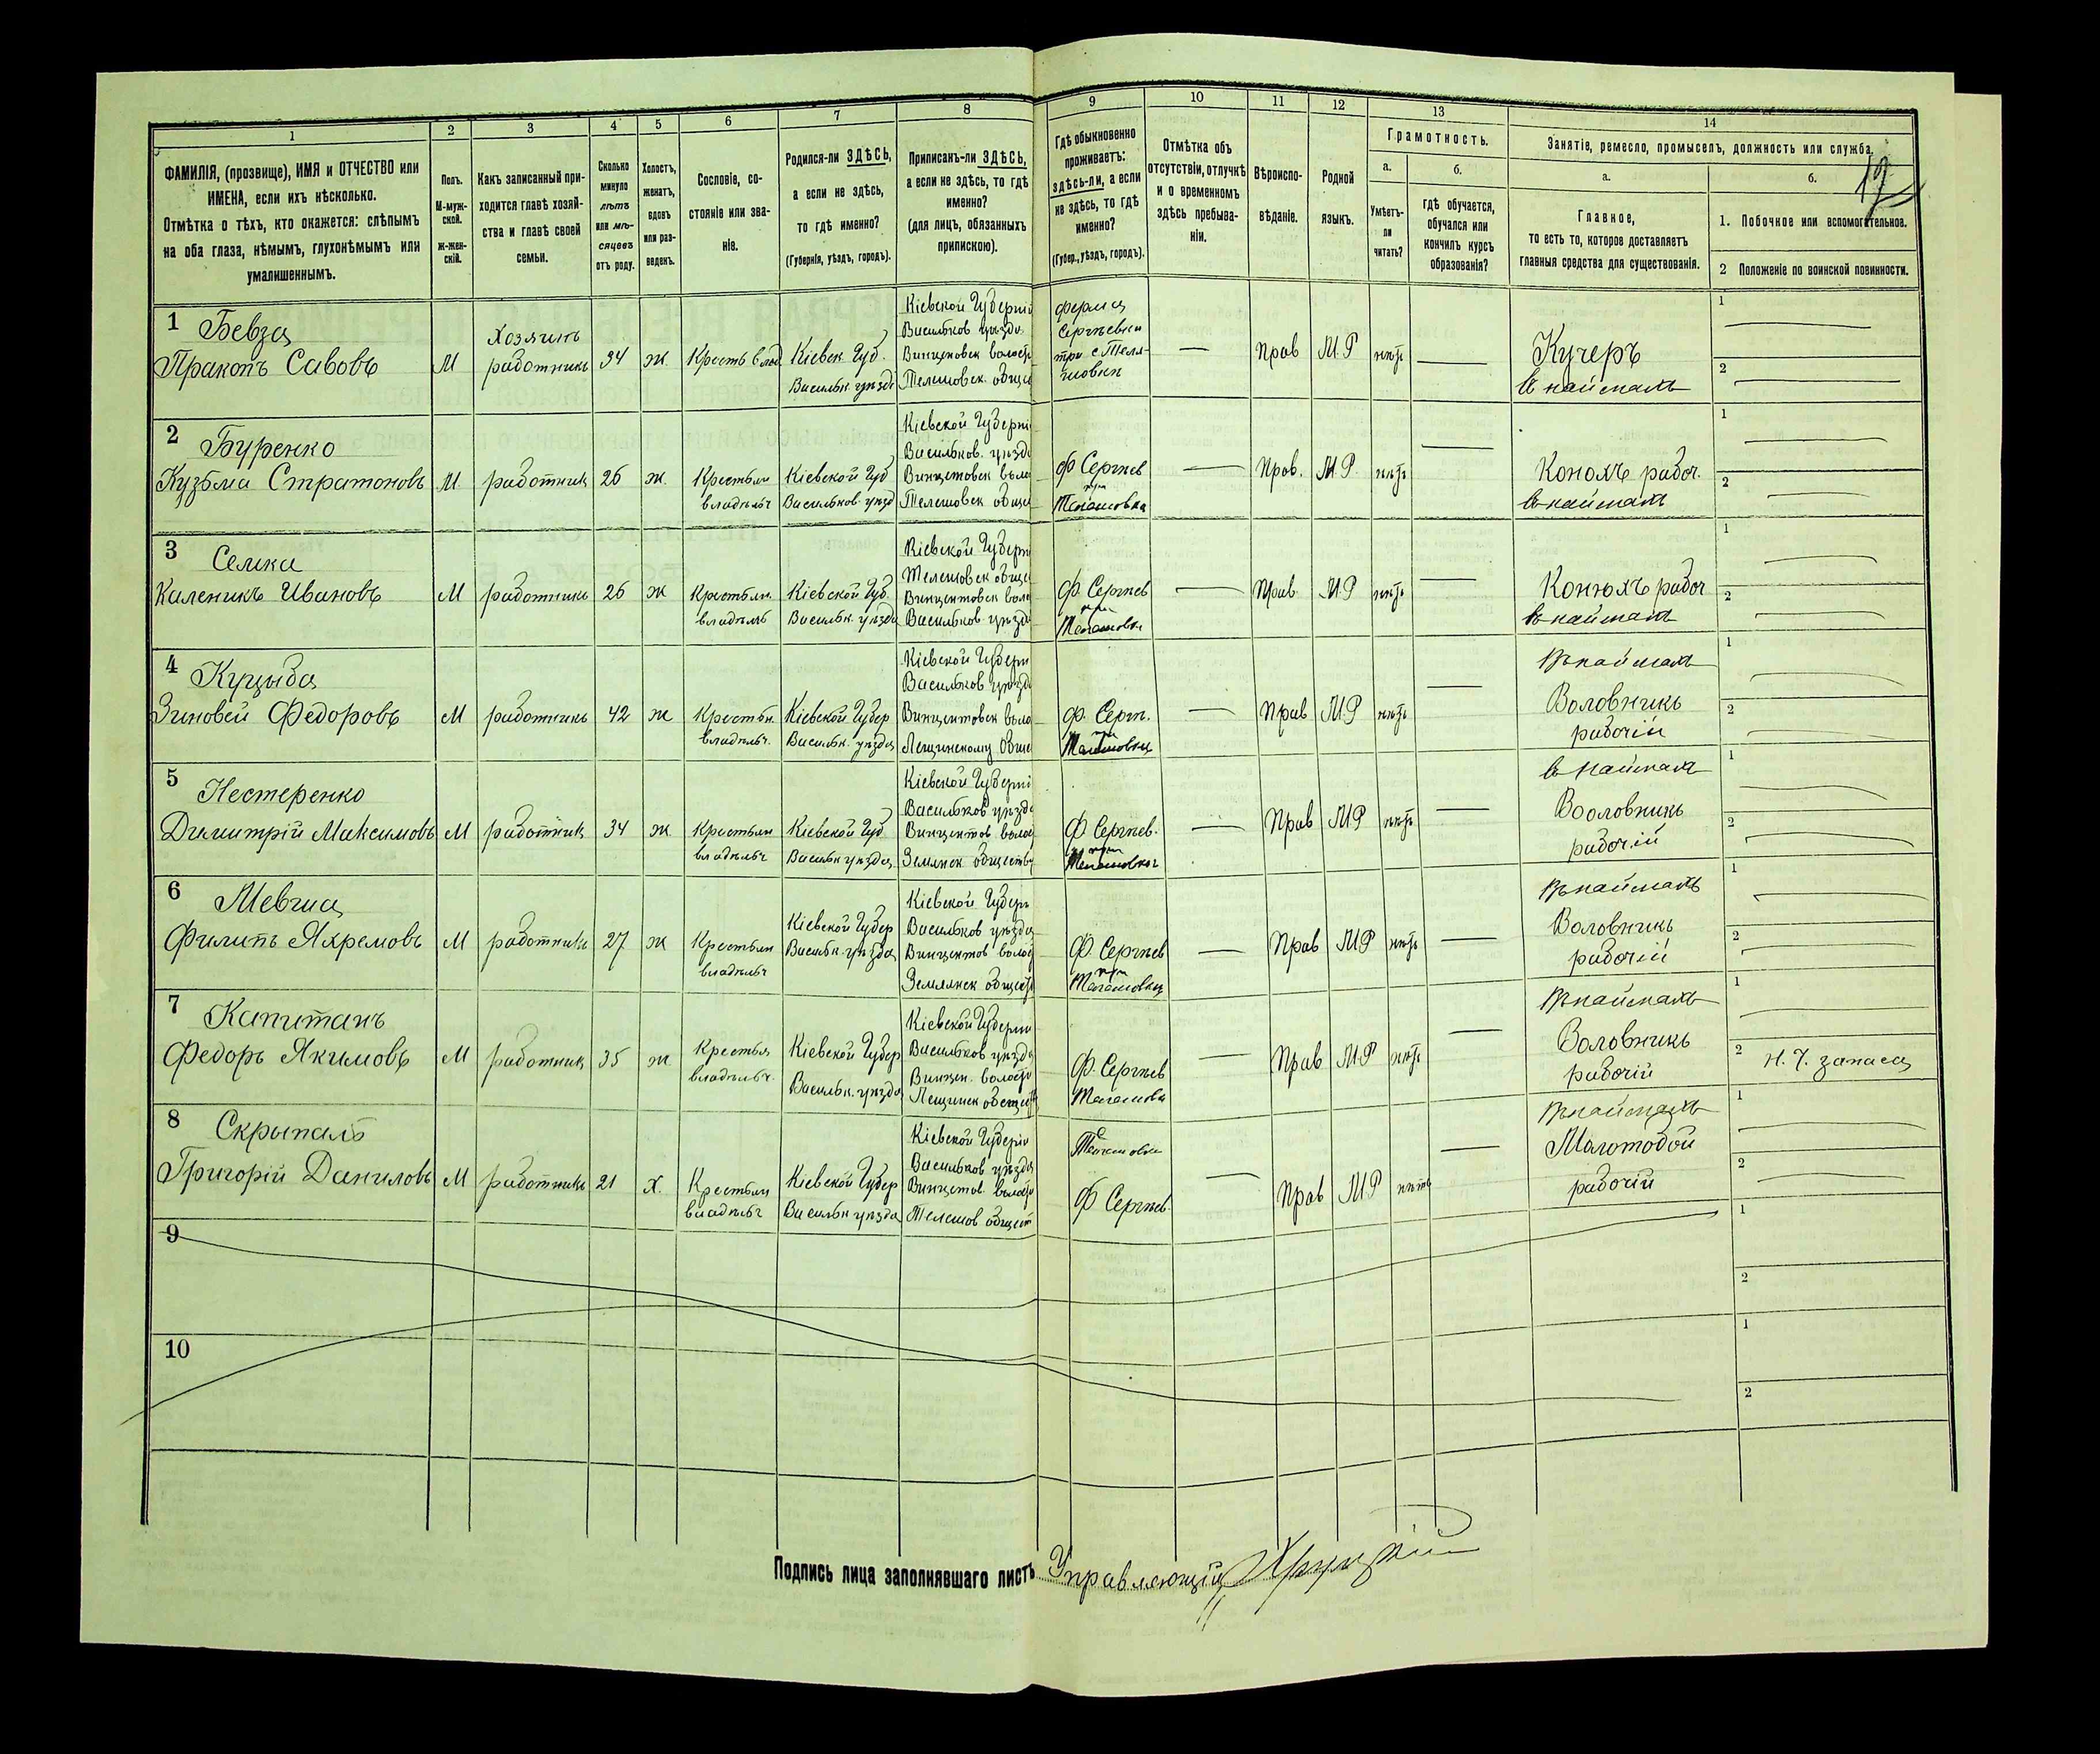 1 2 3 4 5 6 7 8 9 10 11 12 13 14
ФАМИЛІЯ, (прозвище), ИМЯ и ОТЧЕСТВО или ИМЕНА, если ихъ нѣсколько.
Отмѣтка о тѣхъ, кто окажется: слѣпымъ на оба глаза, нѣмымъ, глухонѣмымъ или умалишеннымъ.
Полъ.
М-мужской.
Ж-женскій.
Какъ записанный приходится главѣ хозяйства и главѣ своей семьи.
Сколько минуло лѣтъ или мѣсяцевъ отъ роду.
Холостъ, женатъ, вдовъ или разведенъ.
Сословіе, состояніе или званіе.
Родился-ли ЗДѢСЬ, а если не здѣсь, то гдѣ именно?
(Губернія, уѣздъ, городъ).
Приписанъ-ли ЗДѢСЬ, а если не здѣсь, то гдѣ именно?
(для лицъ, обязанныхъ припискою).
Гдѣ обыкновенно проживаетъ: здѣсь-ли, а если не здѣсь, то гдѣ именно?
(Губер., уѣздъ, городъ).
Отмѣтка объ отсутствіи, отлучкѣ и о временномъ здѣсь пребываніи.
Вѣроисповѣданіе.
Родной языкъ.
Грамотность.
а.
Умѣетъ-ли читать?
б.
гдѣ обучается, обучался или кончилъ курсъ образованія?
Занятіе, ремесло, промыселъ, должность или служба.
а.
Главное,
то есть то, которое доставляетъ главныя средства для существованія.
б.
1. Побочное или вспомогательное.
2 Положеніе по воинской повинности.
1 Бевза
Пракопъ Савовъ
М
Хозяинъ
работникъ
34
ж
Кіевск. Губ.
Васильк. уѣзда
Кіевской Губерніи
Васильков уѣзда
Телешовск. общес
ферма
Прав
М.Р
нѣтъ
Кучеръ
в наймахъ
1
2
2 Буренко
Кузьма Стратоновъ
М
работник
26
ж
Крестьян
владѣльч
Кіевской Губ
Васильков. уѣзд
Кіевской Губерні
Васильков. уѣзда
Телешовск общес
ф Сергѣев
при
Прав.
М.Р.
нѣтъ
Конюхъ рабоч.
в наймахъ
1
2
3 Семка
Каленикъ Ивановъ
М
работникъ
26
ж
Крестьян.
Кіевской Губ.
Васильк. уѣзда
Кіевской Губерн
Телешовск общес
Васильков. уѣзда
ф. Сергѣев
при
Прав
М.Р
нѣтъ
Конюхъ рабоч
в наймахъ
1
2
4 Куцыба
Зиновей Федоровъ
М
работникъ
42
ж
владѣльч.
Кіевской Губер
Васильк. уѣзда
Кіевской Губерн
Васильков уѣзда
Лещинскому обще
ф. Сергѣ.
при
Прав
М.Р
нѣтъ
Въ наймахъ
Воловникъ
рабочій
1
2
5 Нестеренко
Димитрій Максимовъ
М
работник
34
ж
Крестьян
владѣльч
Кіевской Губ
Васильк уѣзда
Кіевской Губерні
Васильков уѣзда
Землянск общества
Ф Сергѣев.
при
Прав
М.Р
нѣтъ
в наймахъ
Вооловникъ
рабочій
1
2
6
Филипъ Яхремовъ
М
работникъ
27
ж
Крестьян
владѣльч
Кіевской Губер
Васильк. уѣзда
Кіевской Губерн
Васильков уѣзда
Землянск общест
Ф. Сергѣев
при
Прав
М.Р
нѣтъ
Въ наймахъ
Воловникъ
рабочій
1
2
7 Капитанъ
Федоръ Якимовъ
М
работник
35
ж
Крестья
владѣльч.
Кіевской Губер
Васильк. уѣзда
Кіевской Губерни
Васильков уѣзда
Лещинск общест
Ф. Сергѣев
Прав
М.Р
нѣтъ
Въ наймахъ
Воловникъ
рабочій
1
2 запаса
8 Скрыпаль
Григорій Даниловъ
М
работникъ
21
Х.
Крестьян
владѣльч
Кіевской Губер
Васильк уѣзда
Кіевской Губерніи
Васильков уѣзда
Телешов общест
Ф Сергѣев
Прав
М.Р
нѣтъ
Въ наймахъ
Молотобой
рабочій
1
2
9
1
2
10
1
2
Подпись лица заполнявшаго листъ Управляющій